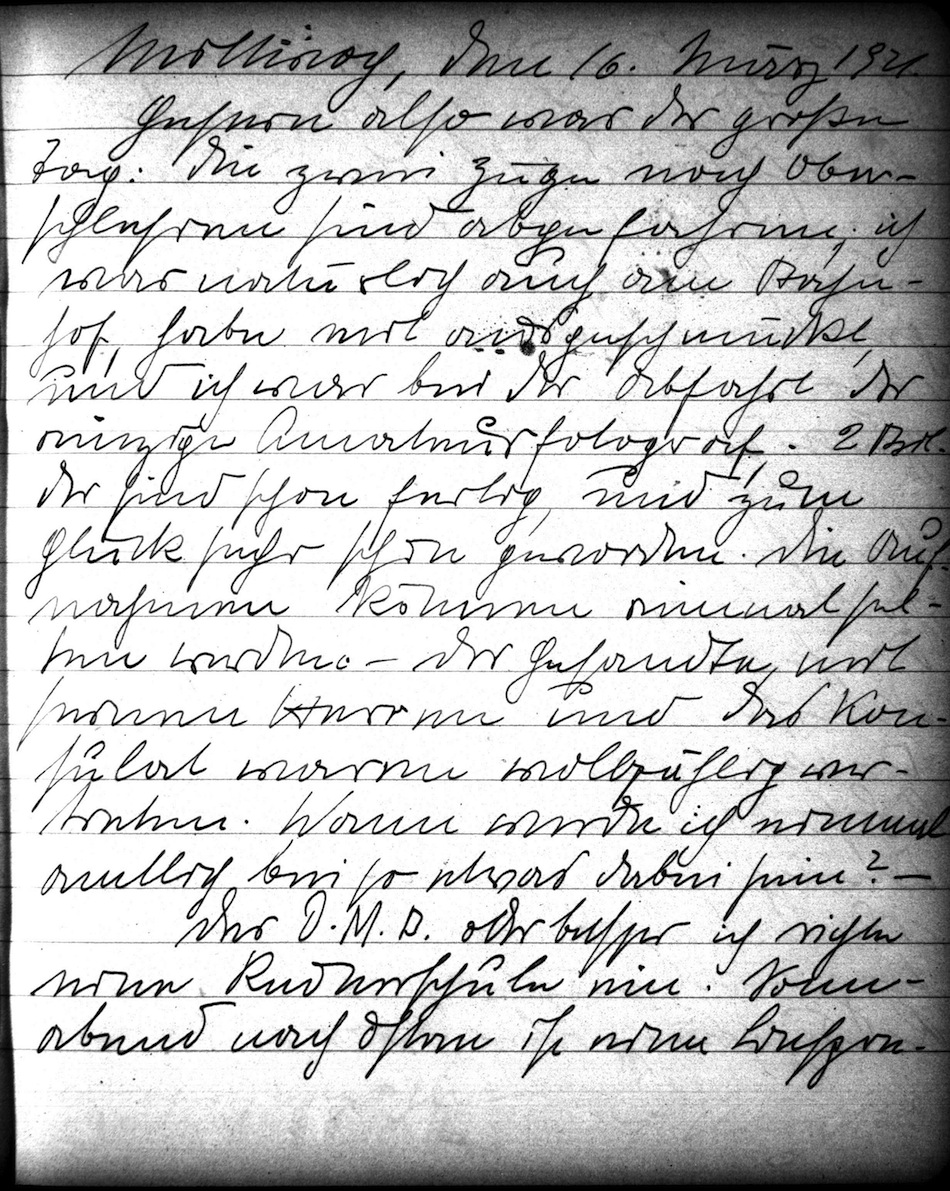 Mittwoch, den 16. März 1921.
Gestern also war der große
Tag: die zwei Züge nach Ober-
schlesien sind abgefahren; ich
war natürlich auch am Bahn-
hof, habe mit ausgeschmückt,
und ich war bei der Abfahrt der
einzige Amateurfotograf. 2 Bil-
der sind schon fertig, und zum
Glück sehr schön geworden. Die Auf-
nahmen können einmal sel-
ten werden. – Der Gesandte mit
seinen Herren und das Kon-
sulat waren vollzählig ver-
treten. Wann werde ich einmal
amtlich bei so etwas dabei sein? –
Der D.M.B. oder besser ich richte
eine Rednerschule ein. Sonn-
abend nach Ostern ist eine